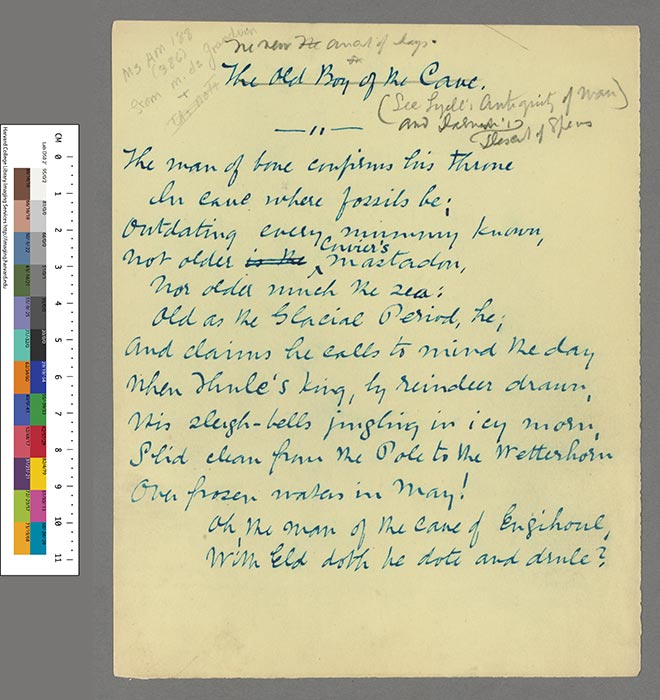 MS Am 188
(386)
from M. de
The new ancient of days.
The Old Boy of the Cave.
(See Lyell's Antiquity of Man)
and Darwin's
Descent of Species
The man of bone confirms his throne
In cave where fossils be;
Outdating every mummy known,
Not older is the Cuvier's mastadon,
Nor older much the sea:
Old as the Glacial Period, he;
And claims he calls to mind the day
When Thule's king, by reindeer drawn,
His sleigh-bells jingling in icy morn,
Slid clean from the Pole to the Wetterhorn
Over frozen waters in May!
Oh, the man of the cave of Engihoul,
With Eld doth he dote and drule?
Harvard College Library Imaging Services
CM 0 1 2 3 4 5 6 7 8 9 10 11